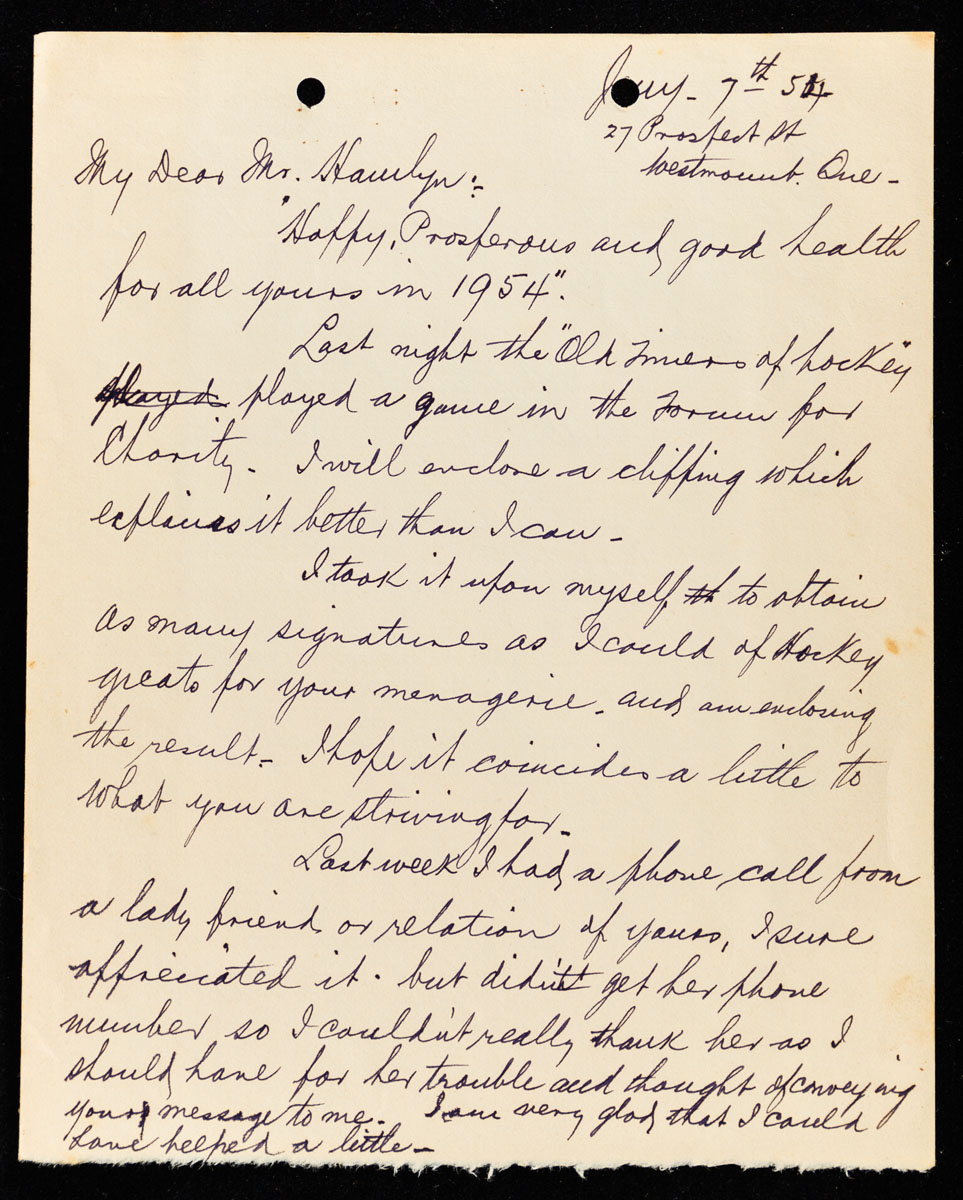 Jany - 7th 54
27 Prospect St
Westmount. Que -
My Dear Mr. Hamlyn:-
"Happy, Prosperous and good health
for all yours in 1954".
Last night the "Old Timers of hockey"
played played a game in the Forum for
Charity - I will enclose a clipping which
explains it better than I can -
I took it upon myself th to obtain
as many signatures as I could of Hockey
greats for your menagerie - and am enclosing
the result - I hope it coincides a little to
what you are striving for -
Last week I had a phone call from
a lady friend or relation of yours, I sure
appreciated it - but didn't get her phone
number so I couldn't really thank her as I
should have for her trouble and thought of conveying
your message to me - I am very glad that I could
have helped a little -